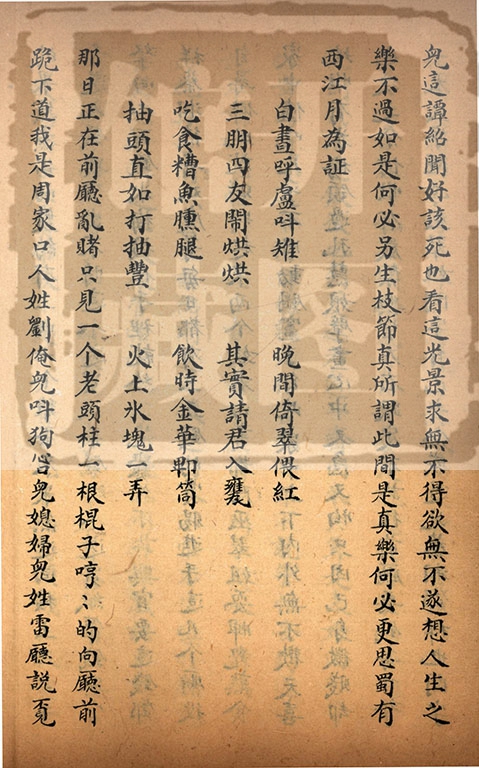 兒這譚紹聞好該死也看這光景求無不得欲無不遂想人生之
樂不過如是何必另生枝節真所謂此間是真樂何必更思蜀有
西江月為証
白晝呼盧呌雉　晚間倚翠偎紅
三朋四友鬧烘烘　其實請君入甕
吃食糟魚臐腿　飲時金華郫筒
抽頭直如打抽豐　火上氷塊一弄
那日正在前廳亂賭只見一个老頭柱一根棍子哼〻的向廳前
跪下道我是周家口人姓劉俺兒呌狗㕣兒媳婦兒姓雷廳説覔